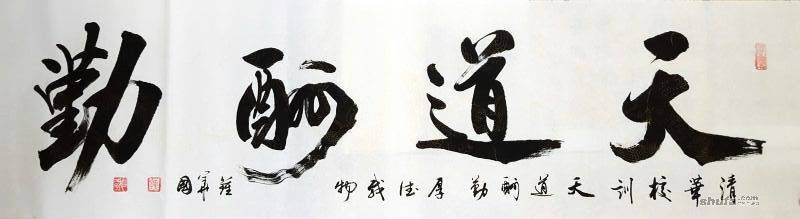 天道酬勤
清華校訓 天道酬勤 厚德載物
軍國
shufa.com